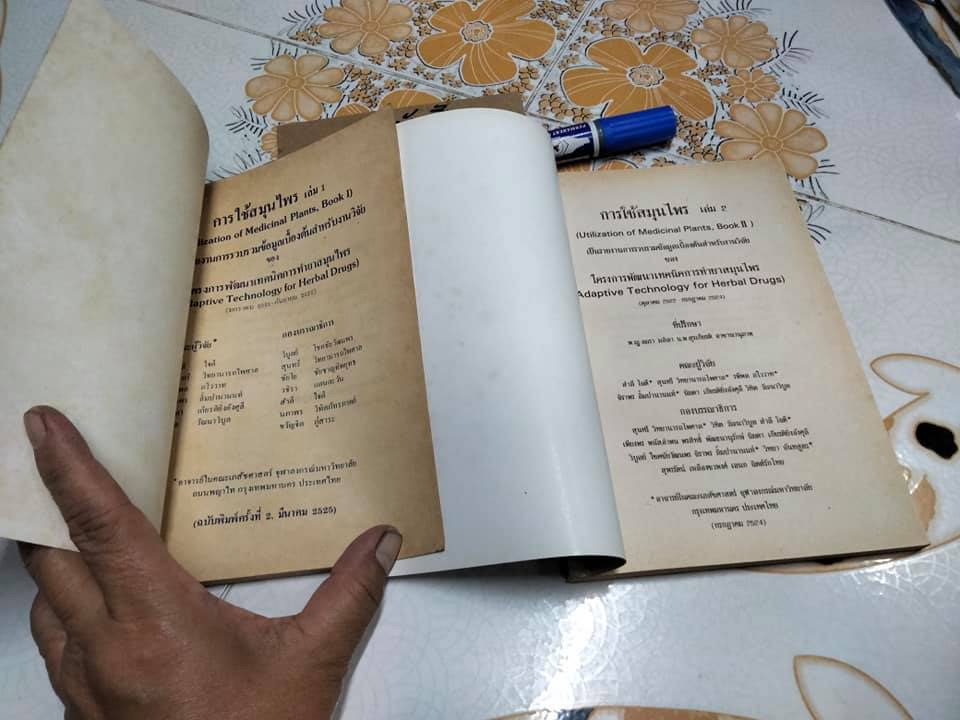 การใช้สมุนไพร เล่ม 1
lization of Medicinal Plants, Book I)
งานการรวบรวมข้อมูลเบื้องต้นสำหรับงานวิจัย
ของ
ครงการพัฒนาเทคนิคการทำยาสมุนไพร
daptive Technology for Herbal Drugs)
กองบรรณาธิการ
ะผู้วิจัย*
ใจดี
วิทยานารถไพศาล
ภไววาท
ลิ้มปานานนท์
เกียรติยิ่งอังศุลี
วัฒนาวิบูล
วิบูลย์ ไชยชัยวัฒนา
สุนทรี วิทยานารถไพศาล
ชัยโย ชัยชาญทิพยุทธ
รชิรา
สำลี ใจดี
นภาพร
ขวัญจิต
* อาจารย์ในคณะเภสัชศาสตร์ จุฬาลงกรณ์มหาวิทยาลัย
ถนนพญาไท กรุงเทพมหานคร ประเทศไทย
(ฉบับพิมพ์ครั้งที่ 2, มีนาคม 2525)
PERMANENT
การใช้สมุนไพร เล่ม 2
(Utilization of Medicinal Plants, Book II )
เป็นรายงานการรวบรวมข้อมูลเบื้องต้นสำหรับงานวิจัย
ของ
โครงการพัฒนาเทคนิคการทำยาสมุนไพร
Adaptive Technology for Herbal Drugs)
(ตุลาคม 2522 - กรกฎาคม 2524)
ที่ปรึกษา
คณะผู้วิจัย
สำลี ใจดี* สุนทรี วิทยานารถไพศาล* รพีพล ภโววาท*
จิราพร ลิ้มปานานนท์* นิสดา เกียรติยิ่งอังศุลี วิชิต วัฒนาวิบูล
กองบรรณาธิการ
สุนทรี วิทยานารถไพศาล* วิชิต วัฒนาวิบูล สำลี ใจดี*
* อาจารย์ในคณะเภสัชศาสตร์ จุฬาลงกรณ์มหาวิทยาลัย
กรุงเทพมหานคร ประเทศไทย
(กรกฎาคม 2524)